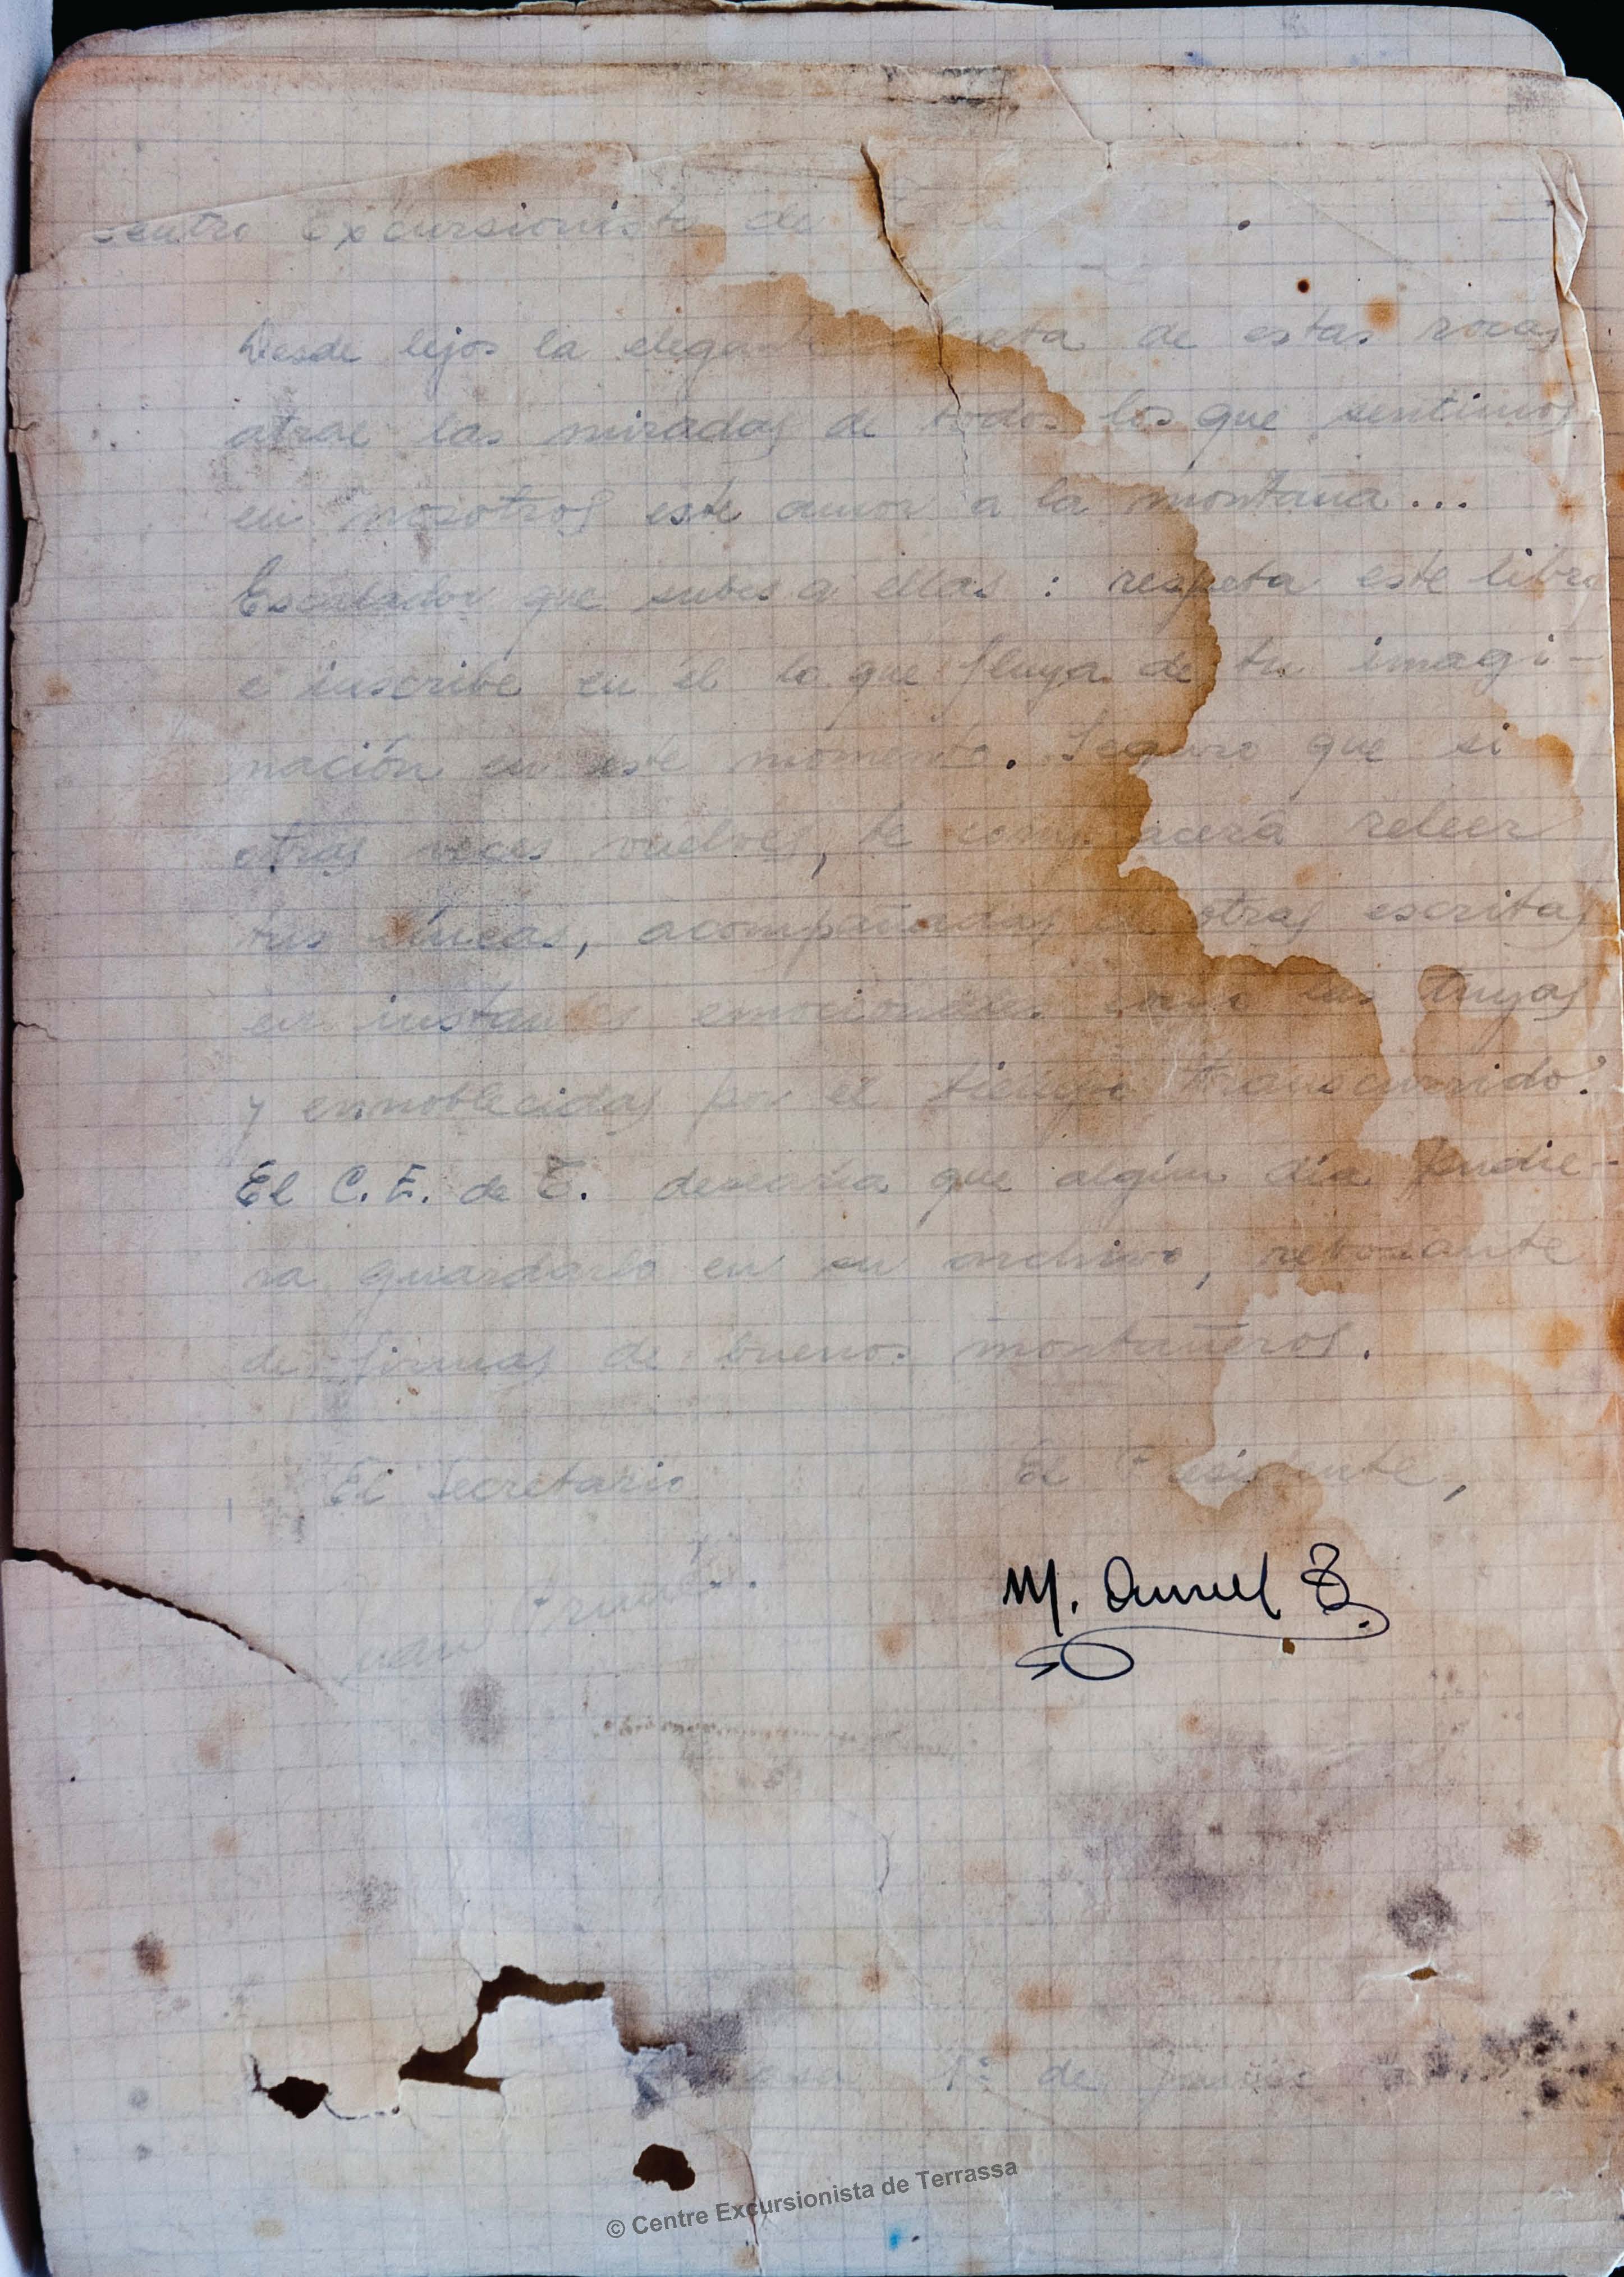 Centro Excursionista de
Desde lejos la elegante silueta de estas rocas
atrae las miradas de todos los que sentimos
en nosotros este amor a la montaña...
Escalador que subes a ellas : respeta este libro
e inscribe en él lo que fluya de tu imagi-
nación en este momento. Seguro que si
otras veces vuelves, te complacerá releer
tus líneas, acompañadas de otras escritas
en instantes emocionales como las tuyas
y ennoblecidas por el tiempo transcurrido.
El C. E. de T. desearía que algún día pudie-
ra guardarlo en su archivo, rebosante
de firmas de buenos montañeros.
El Secretario El Presidente,
M.
1º de
© Centre Excursionista de Terrassa